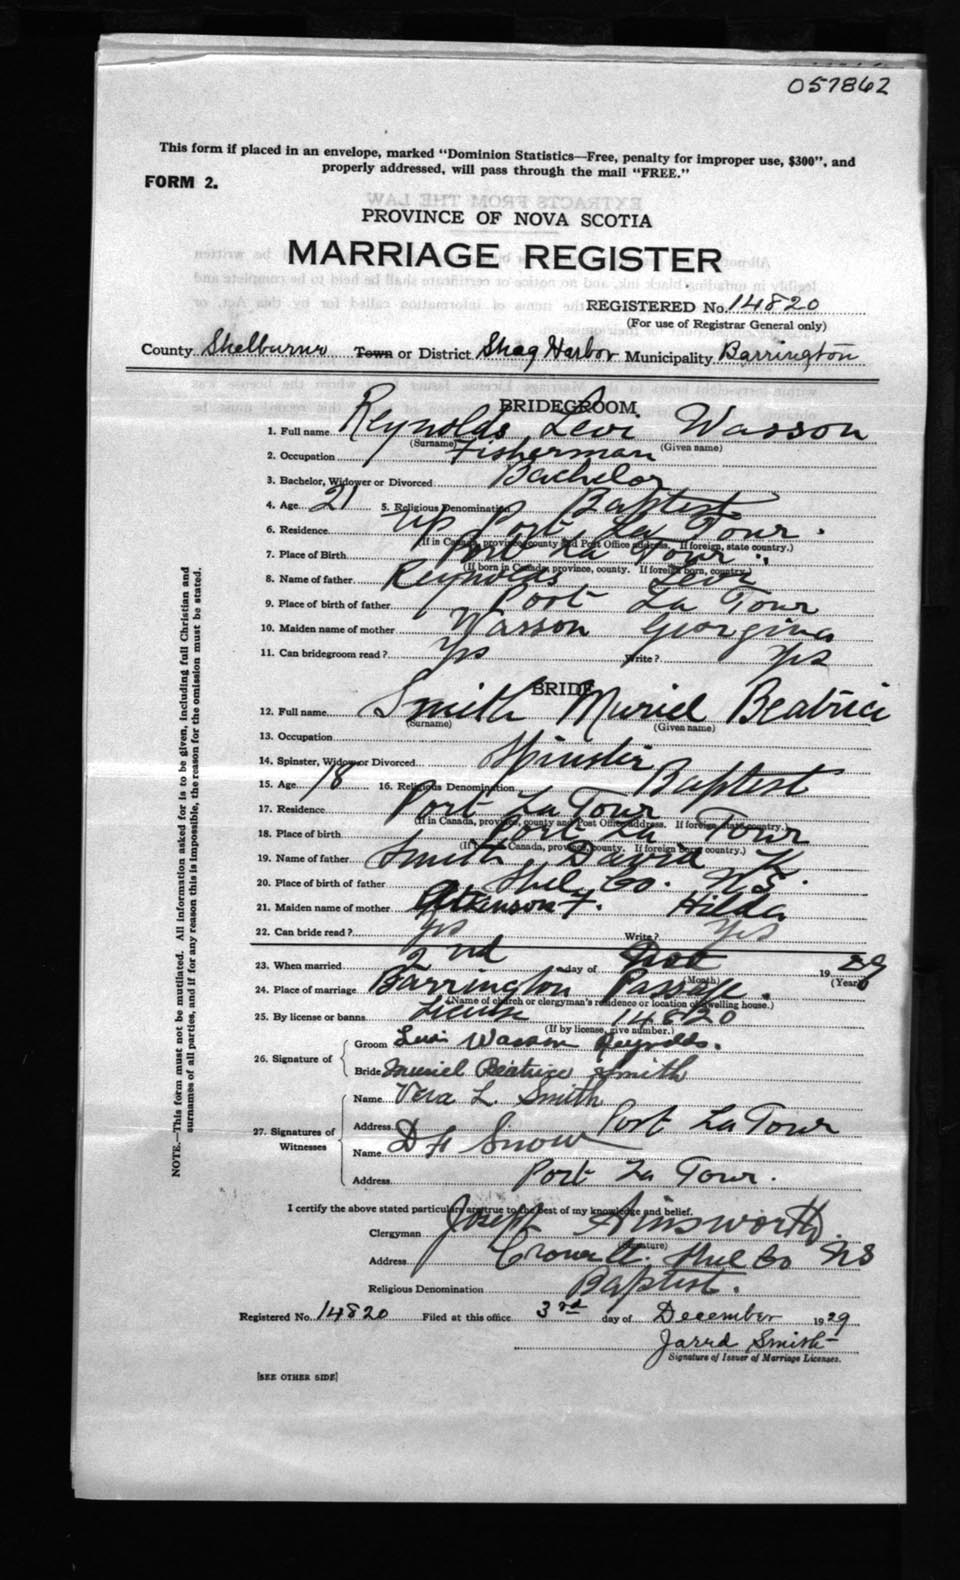 057862
This form if placed in an envelope, marked "Dominion Statistics—Free, penalty for improper use, $300", and
properly addressed, will pass through the mail "FREE."
FORM 2.
PROVINCE OF NOVA SCOTIA
MARRIAGE REGISTER
REGISTERED No. 14820
(For use of Registrar General only)
County Shelburne Town or District Shag Harbor Municipality Barrington
BRIDEGROOM
1. Full name Reynolds, Levi Wasson
(Surname) (Given name)
2. Occupation Fisherman
3. Bachelor, Widower or Divorced Bachelor
4. Age 21 5. Religious Denomination Baptist
6. Residence Up Port La Tour.
(If in Canada, province, county and Post Office address. If foreign, state country.)
7. Place of Birth Port La Tour
(If born in Canada, province, county. If foreign born, country.)
8. Name of father Reynolds Levi
9. Place of birth of father Port La Tour
10. Maiden name of mother Wasson Georgina
11. Can bridegroom read? Yes Write? Yes
BRIDE
12. Full name Smith Muriel Beatrice
(Surname) (Given name)
13. Occupation
14. Spinster, Widow or Divorced Spinster
15. Age 18 16. Religious Denomination Baptist
17. Residence Port La Tour
(If in Canada, province, county and Post Office address. If foreign, state country.)
18. Place of birth Port La Tour
(If in Canada, province, county. If foreign born, country.)
19. Name of father Smith, David K.
20. Place of birth of father Shel. Co. N.S.
21. Maiden name of mother Atkinson F. Hilda
22. Can bride read? Yes Write? Yes
23. When married 2nd day of 1929
(Month) (Year)
24. Place of marriage Barrington Passage.
(Name of church or clergyman's residence or location of dwelling house.)
25. By license or banns License 14820
(If by license, give number.)
26. Signature of Groom Levi Wasson Reynolds.
Bride Muriel Beatrice Smith
27. Signatures of Witnesses Name Vera L. Smith
Address Port La Tour
Name Snow
Address Port La Tour.
I certify the above stated particulars are true to the best of my knowledge and belief.
Clergyman Joseph Ainsworth.
(Signature)
Address Shel Co NS
Religious Denomination Baptist.
Registered No. 14820 Filed at this office 3rd day of December 1929
Jarrd Smith
Signature of Issuer of Marriage Licenses.
[SEE OTHER SIDE]
NOTE.—This form must not be mutilated. All information asked for is to be given, including full Christian and
surnames of all parties, and if for any reason this is impossible, the reason for the omission must be stated.